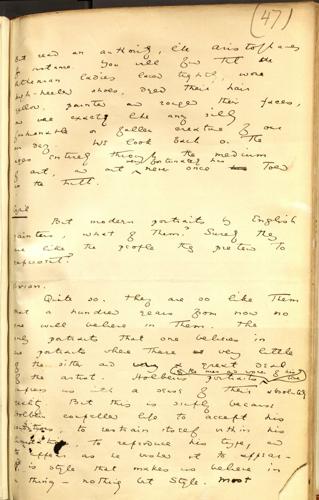 (47)
But read an authority, like Aristophanes
for instance. You will find that the
Athenian ladies laced tightly, wore
high-heeled shoes, dyed their hair
yellow, painted and rouged their faces,
and were exactly like any silly
fashionable or fallen creature of our
own day. We look back on the
ages entirely through the medium
of art, and art very fortunately has never once told
us the truth.
Cyril
But modern portraits by English
painters, what of them? Surely they
are like the people they pretend to
represent?
Vivian.
Quite so. They are so like them
that a hundred years from now no
one will believe in them. The
only portraits that one believes in
are portraits where there is very little
of the sitter and a very great deal
of the artist. Holbein's portraits of the men and women of his time
impress us with a sense of their absolute
reality. But this is simply because
Holbein compelled life to accept his
conditions, to restrain itself within his
limitations, to reproduce his type, and
to appear as he wished it to appear.
It is style that makes us believe in
a thing - nothing but style. Most